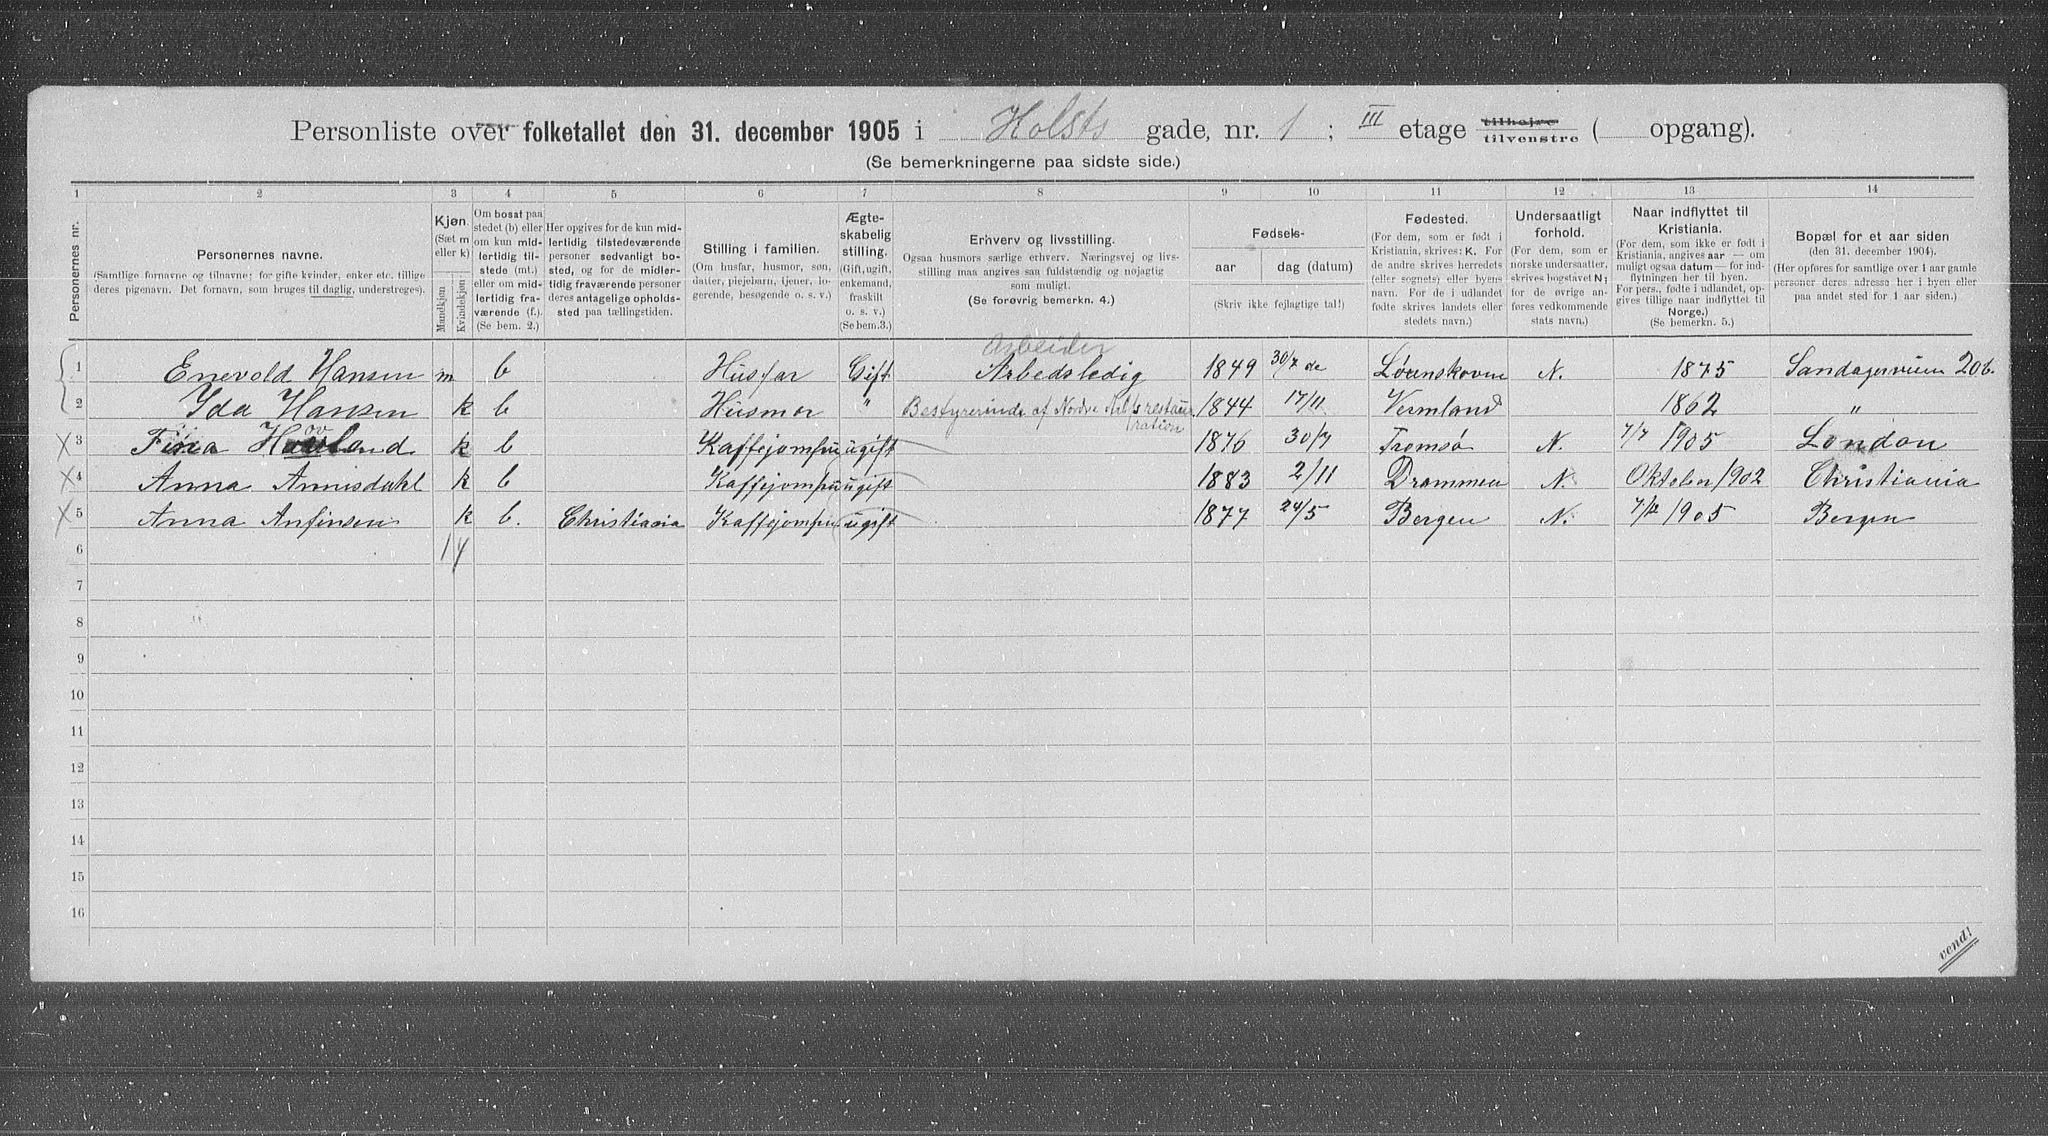 Personliste over folketallet den 31. december 1905 i Holsts gade, nr. 1 ; III etage tilhøjre tilvenstre ( opgang).
(Se bemerkningerne paa sidste side.)
1 2 3 4 5 6 7 8 9 10 11 12 13 14
Personernes nr.
Personernes navne.
(Samtlige fornavne og tilnavne; for gifte kvinder, enker etc. tillige
deres pigenavn. Det fornavn, som bruges til daglig, understreges).
Kjøn.
(Sæt m
eller k)
Mandkjøn
Kvindekjøn
Om bosat paa
stedet (b) eller
om kun mid-
lertidig til-
stede (mt.)
eller om mid-
lertidig fra-
værende (f.).
(Se bem. 2.)
Her opgives for de kun mid-
lertidig tilstedeværende
personer sedvanligt bo-
sted, og for de midler-
tidig fraværende personer
deres antagelige opholds-
sted paa tællingstiden.
Stilling i familien.
(Om husfar, husmor, søn,
datter, plejebarn, tjener, lo-
gerende, besøgende o. s. v.)
Ægte-
skabelig
stilling.
(Gift, ugift,
enkemand,
fraskilt
o. s. v.)
(Se bem.3.)
Erhverv og livsstilling.
Ogsaa husmors særlige erhverv. Næringsvej og livs-
stilling maa angives saa fuldstændig og nøjagtig
som muligt.
(Se forøvrig bemerkn. 4.)
Fødsels-
aar
dag (datum)
(Skriv ikke fejlagtige tal!)
Fødested.
(For dem, som er født i
Kristiania, skrives: K. For
de andre skrives herredets
(eller sognets) eller byens
navn. For de i udlandet
fødte skrives landets eller
stedets navn.)
Undersaatligt
forhold.
(For dem, som er
norske undersaatter,
skrives bogstavet N;
for de øvrige an-
føres vedkommende
stats navn.)
Naar indflyttet til
Kristiania.
(For dem, som ikke er født i
Kristiania, angives aar — om
muligt ogsaa datum — for ind-
flytningen her til byen.
For pers., fødte i udlandet, op-
gives tillige naar indflyttet til
Norge.)
(Se bemerkn. 5.)
Bopæl for et aar siden
(den 31. december 1904).
(Her opføres for samtlige over 1 aar gamle
personer deres adresse her i byen eller
paa andet sted for 1 aar siden.)
Arbeider
1 Enevold Hansen m b Husfar Gift Arbedsledig 1849 30/7 de Lørenskoven N. 1875 Sandagerveien 20b.
2 Ida Hansen k b Husmor " Bestyrerinde af Nordre Arb.s restau- 1844 17/11 Vermland 1862 "
ration
3 Fina Hovland k b Kaffejomfru ugift 1876 30/7 Tromsø N. 7/7 1905 London
4 Anna Annisdahl k b Kaffejomfru ugift 1883 2/11 Drammen N. Oktober 1902 Christiania
5 Anna Anfinsen k b. Christiania Kaffejomfru ugift 1877 24/5 Bergen N. 7/12 1905 Bergen
6 1 4
7
8
9
10
11
12
13
14
15
16
vend!